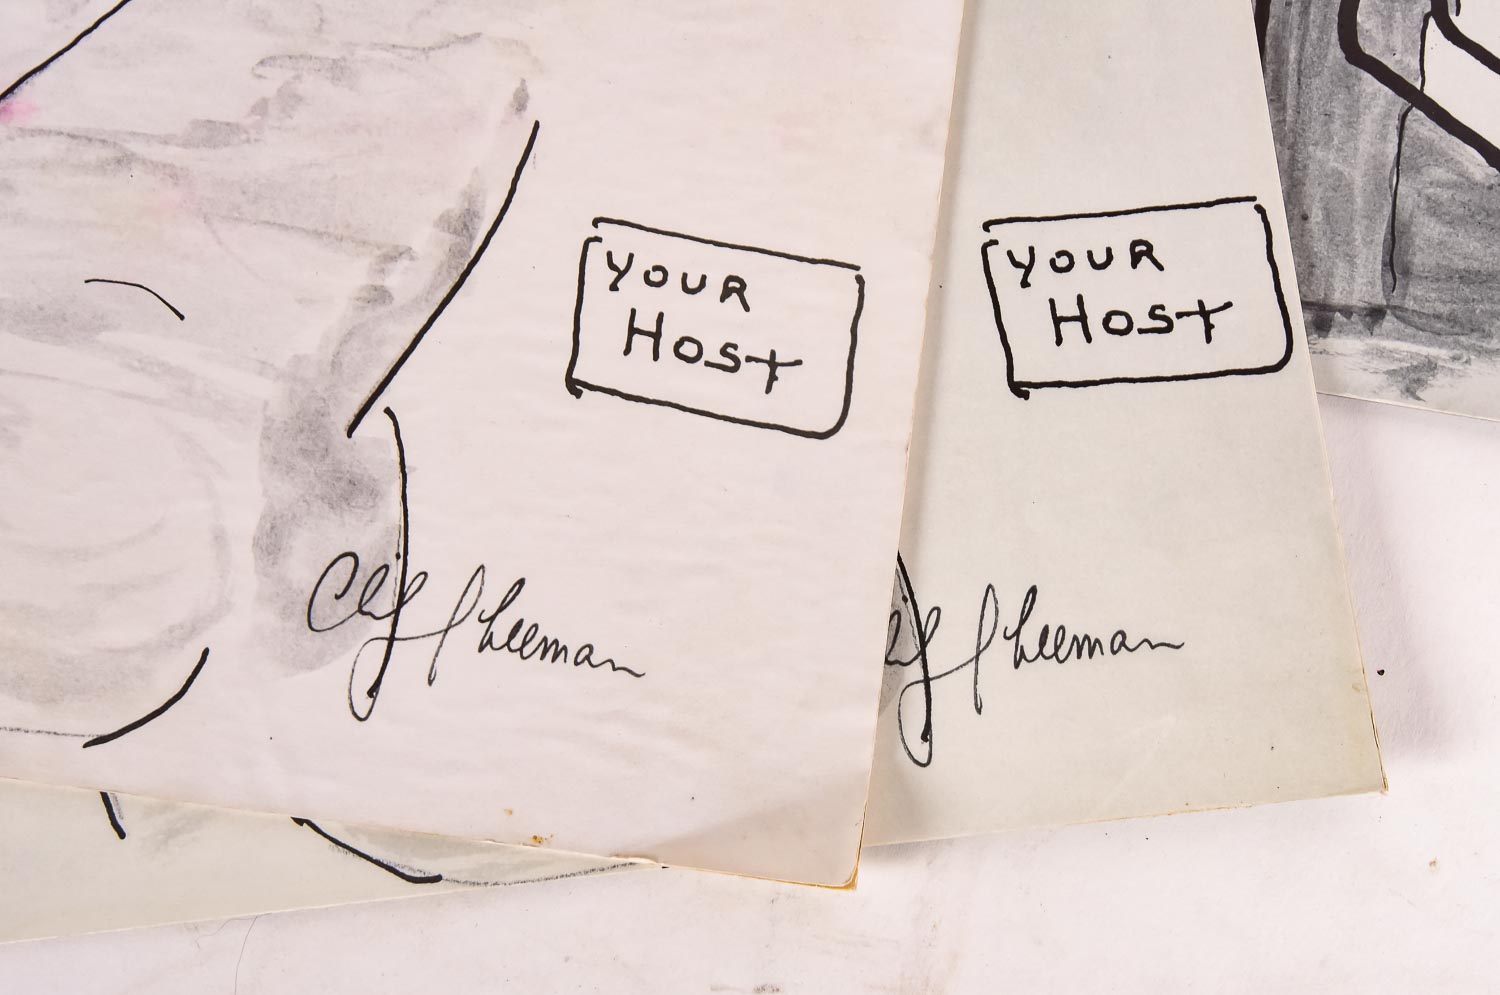 YOUR
HOST
Clif Sheeman
YOUR
HOST
lif Sheeman